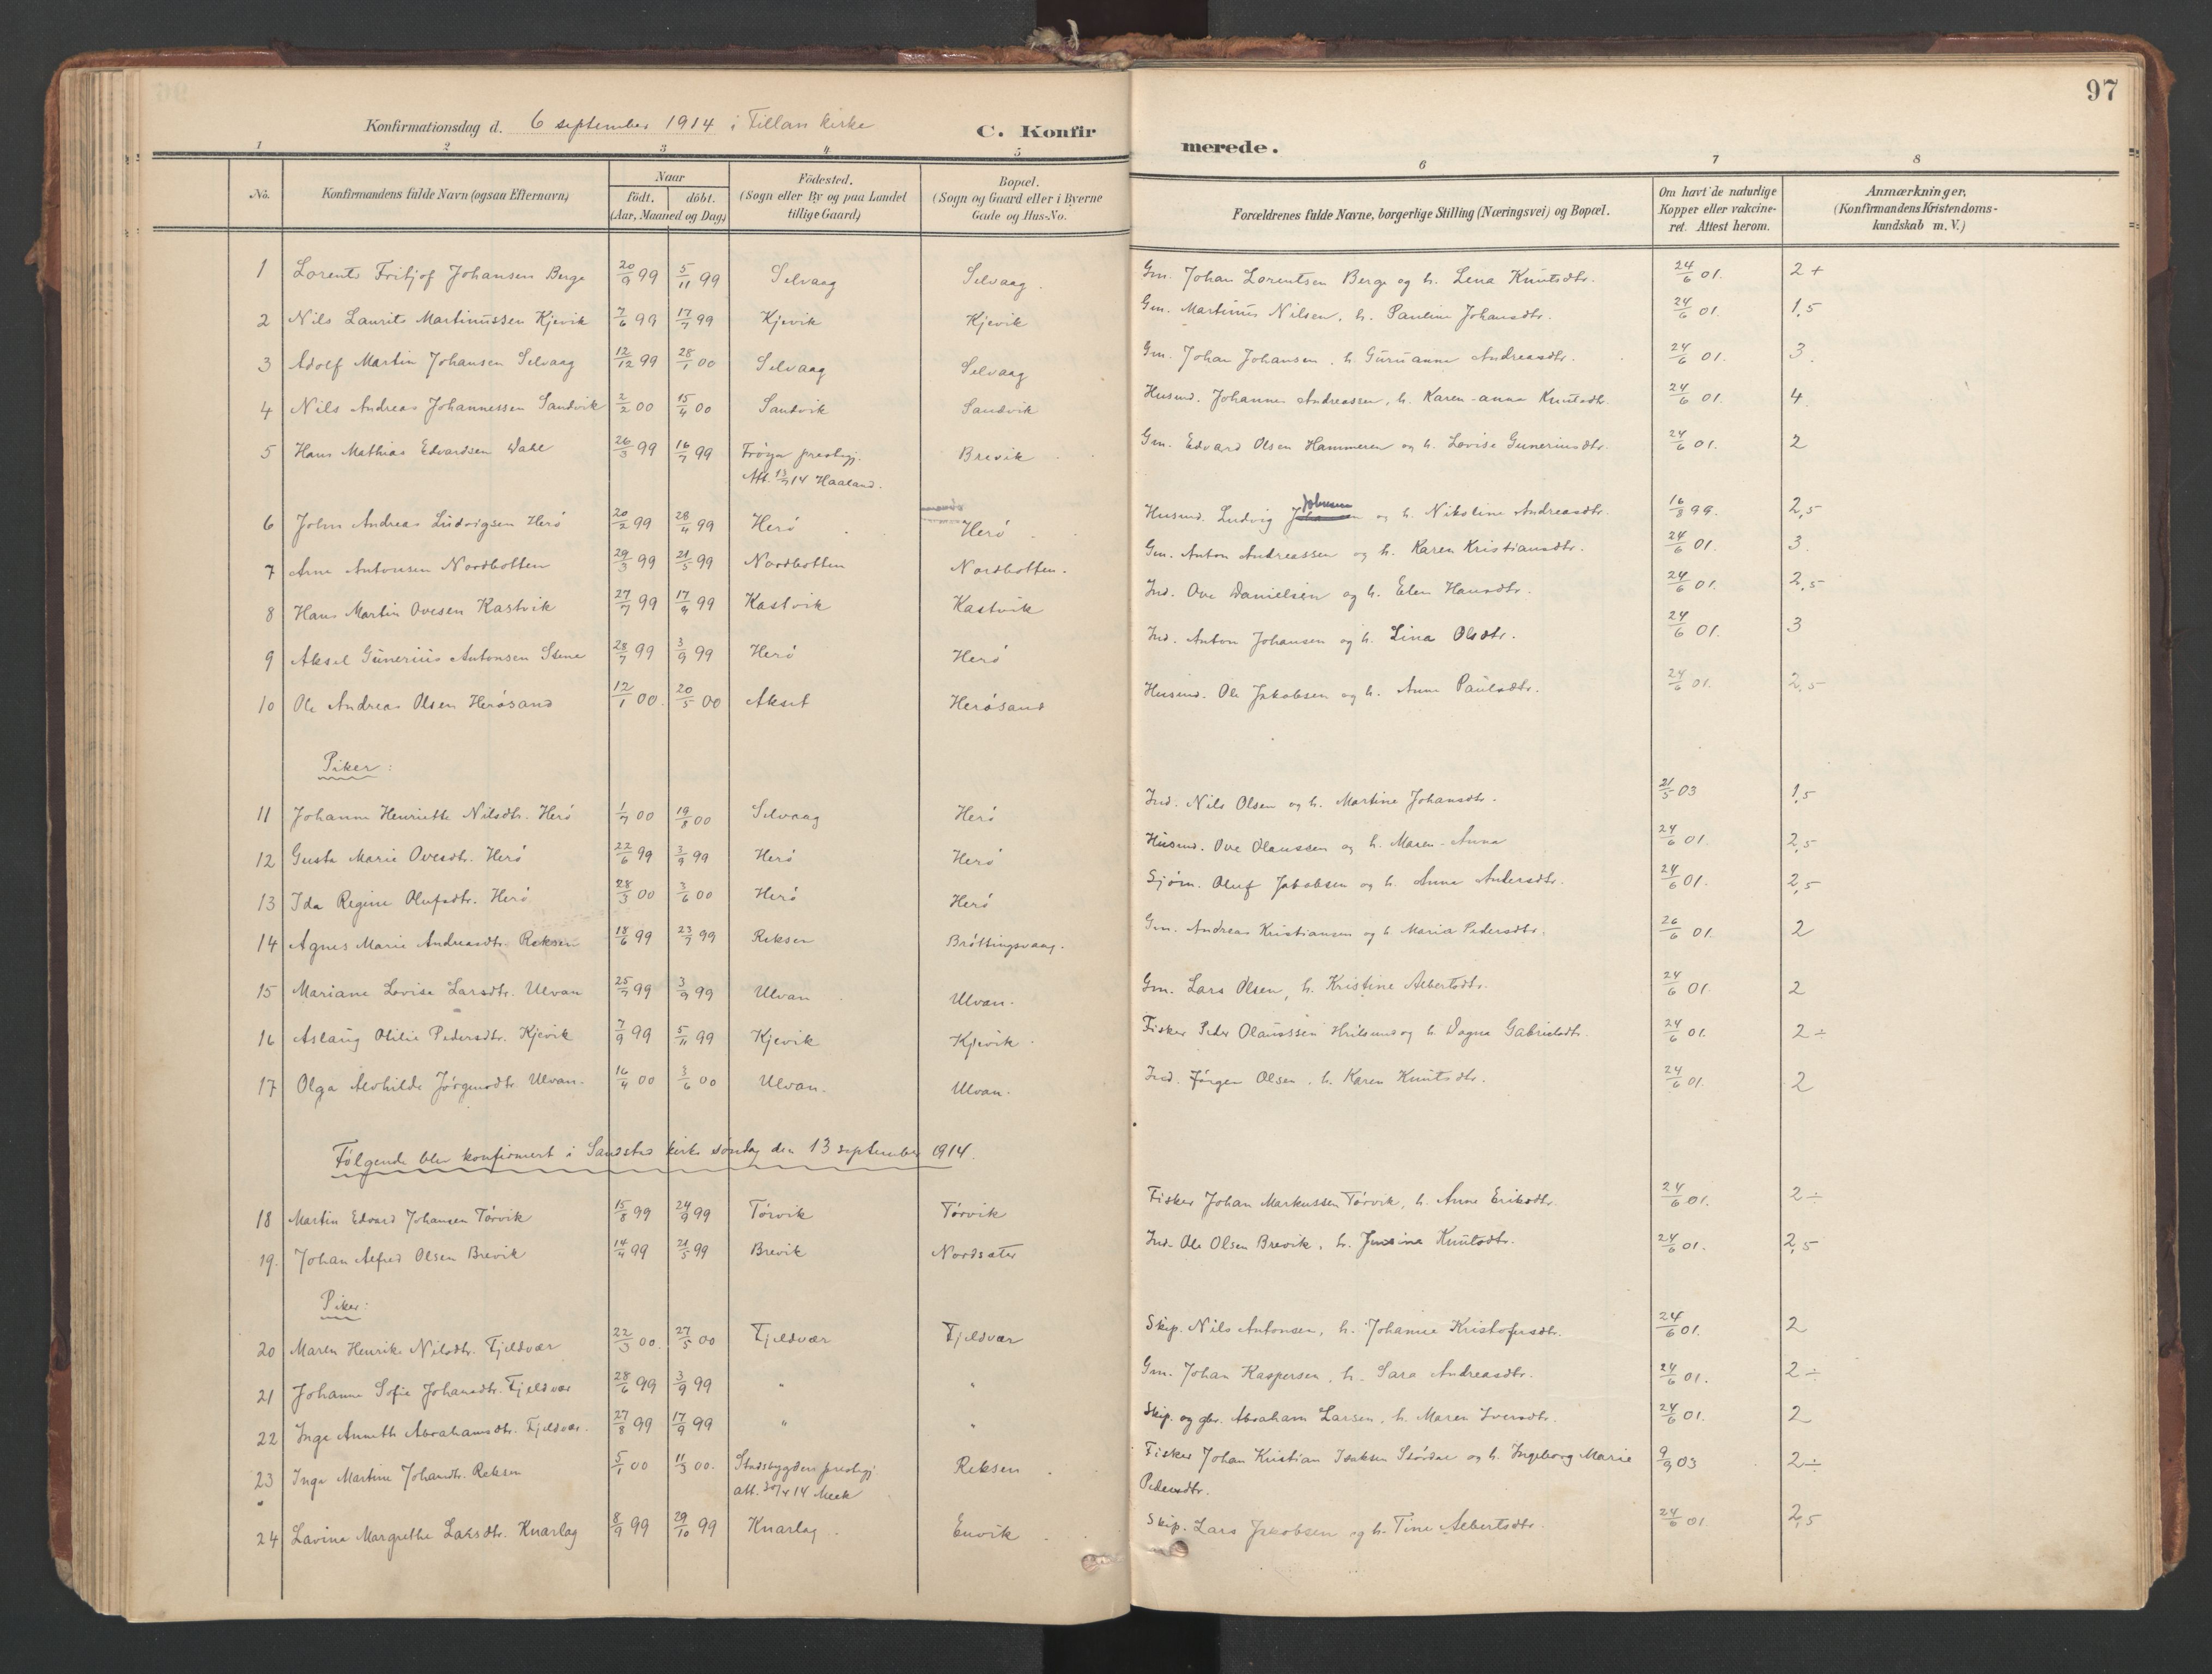 97
Konfirmationsdag d. 6 september 1914 i Fillan kirke
C. Konfirmerede.
1 2 3 4 5 6 7 8
No. Konfirmandens fulde Navn (ogsaa Efternavn) Naar født. døbt. (Aar, Maaned og Dag) Födested. (Sogn eller By og paa Landet tillige Gaard) Bopæl. (Sogn og Gaard eller i Byerne Gade og Hus-No. Forældrenes fulde Navne, borgerlige Stilling (Næringsvei) og Bopæl. Om havt de naturlige Kopper eller vakcineret. Attest herom. Anmærkninger, (Konfirmandens Kristendomskundskab m. V.)
1 Lorents Fritjof Johansen Berge 20/9 99 5/11 99 Selvaag Selvaag. Gm. Johan Lorentsen Berge og h. Lena Knutsdtr. 24/6 01. 2 +
2 Nils Laurits Martinussen Kjevik 7/6 99 17/7 99 Kjevik Kjevik Gm. Martinus Nilsen, h. Pauline Johansdtr. 24/6 01. 1,5
3 Adolf Martin Johansen Selvaag 12/12 99 28/1 00 Selvaag Selvaag Gm. Johan Johansen, h. Guruanna Andreasdtr. 24/6 01. 3.
4 Nils Andreas Johannessen Sandvik 2/2 00 15/4 00 Sandvik Sandvik Husmd. Johannes Andreassen, h. Karen-anna Knutsdtr. 24/6 01. 4
5 Hans Mathias Edvardsen Dahl 26/3 99 16/7 99 Frøya prestegj. Brevik Gm. Edvard Olsen Hammeren og h. Lovise Guneriusdtr. 24/6 01. 2
Att. 13/7 14 Haaland.
6 John Andreas Ludvigsen Herø 20/2 99 28/4 99 Herø Herø Husmd. Ludvig Johnsen og h. Nikoline Andreasdtr. 16/8 99. 2,5
7 Arne Antonsen Nordbotten 29/3 99 21/5 99 Nordbotten Nordbotten. Gm. Anton Andreassen og h. Karen Kristiansdtr. 24/6 01. 3.
8 Hans Martin Ovesen Kastvik 27/7 99 17/9 99 Kastvik Kastvik Ind. Ove Danielsen og h. Elen Hansdtr. 24/6 01. 2,5
9 Aksel Gunerius Antonsen Stene 28/7 99 3/9 99 Herø Herø Ind. Anton Johansen og h. Lina Olsdtr. 24/6 01. 3
10 Ole Andreas Olsen Herøsand 12/1 00. 20/5 00 Akset Herøsand Husmd. Ole Jakobsen og h. Anne Paulsdtr. 24/6 01. 2,5
Piker:
11 Johanne Henriette Nilsdtr. Herø 1/7 00 19/8 00 Selvaag Herø Ind. Nils Olsen og h. Martine Johansdtr. 21/5 03 1,5
12 Gusta Marie Ovesdtr. Herø 22/6 99 3/9 99 Herø Herø Husmd. Ove Olaussen og h. Maren-Anna 24/6 01. 2,5
13 Ida Regine Olufsdtr. Herø 28/3 00 3/6 00 Herø Herø Sjøm. Oluf Jakobsen og h. Anna Andersdtr. 24/6 01. 2,5
14 Agnes Marie Andreasdtr. Reksen 18/6 99 23/7 99 Reksen Brøttingsvaag. Gm. Andreas Kristiansen og h. Maria Pedersdtr. 26/6 01. 2
15 Mariane Lovise Larsdtr. Ulvan 25/7 99 3/9 99 Ulvan Ulvan. Gm. Lars Olsen, h. Kristine Albertsdtr. 24/6 01. 2
16 Aslaug Otilie Pedersdtr. Kjevik 7/9 99 5/11 99 Kjevik Kjevik. Fisker Peder Olaussen og h. Dagna Gabrielsdtr. 24/6 01. 2 ÷
17 Olga Alvhilde Jørgensdtr. Ulvan. 16/4 00 3/6 00 Ulvan. Ulvan. Ind. Jørgen Olsen, h. Karen Knutsdtr. 24/6 01. 2
Følgende blev konfirmert i Sandstad kirke søndag den 13 september 1914.
18 Martin Edvard Johansen Tørvik 15/8 99 24/9 99 Tørvik Tørvik Fisker Johan Markussen Tørvik, h. Anne Eriksdtr. 24/6 01. 2 ÷
19. Johan Alfred Olsen Brevik 14/4 99 21/5 99 Brevik Nordsæter Ind. Ole Olsen Brevik, h. Jensina Knutsdtr. 24/6 01. 2,5
Piker:
20 Maren Henrike Nilsdtr. Fjeldvær 22/3 00. 27/5 00 Fjeldvær Fjeldvær Skip. Nils Antonsen, h. Johanne Kristofersdtr. 24/6 01. 2
21 Johanne Sofie Johansdtr. Fjeldvær 28/6 99 3/9 99 " " Gm. Johan Kaspersen, h. Sara Andreasdtr. 24/6 01. 2 ÷
22 Inga Anneth Abrahamsdtr. Fjeldvær. 27/8 99 17/9 99 " " Skip. og gbr. Abraham Larsen, h. Maren Iversdtr. 24/6 01. 2
23 Inga Martine Johansdtr. Reksen 5/1 00 11/3 00. Stadsbygden prestegj Reksen Fisker Johan Kristian Isaksen Stordal og h. Ingeborg Marie 9/9 03 2 ÷
att. 30/4 14 Meek Pedersdtr.
24 Lavina Margrethe Larsdtr. Knarlag 8/9 99 29/10 99 Knarlag. Envik Skip. Lars Jakobsen og h. Tine Albertsdtr. 24/6 01. 2,5